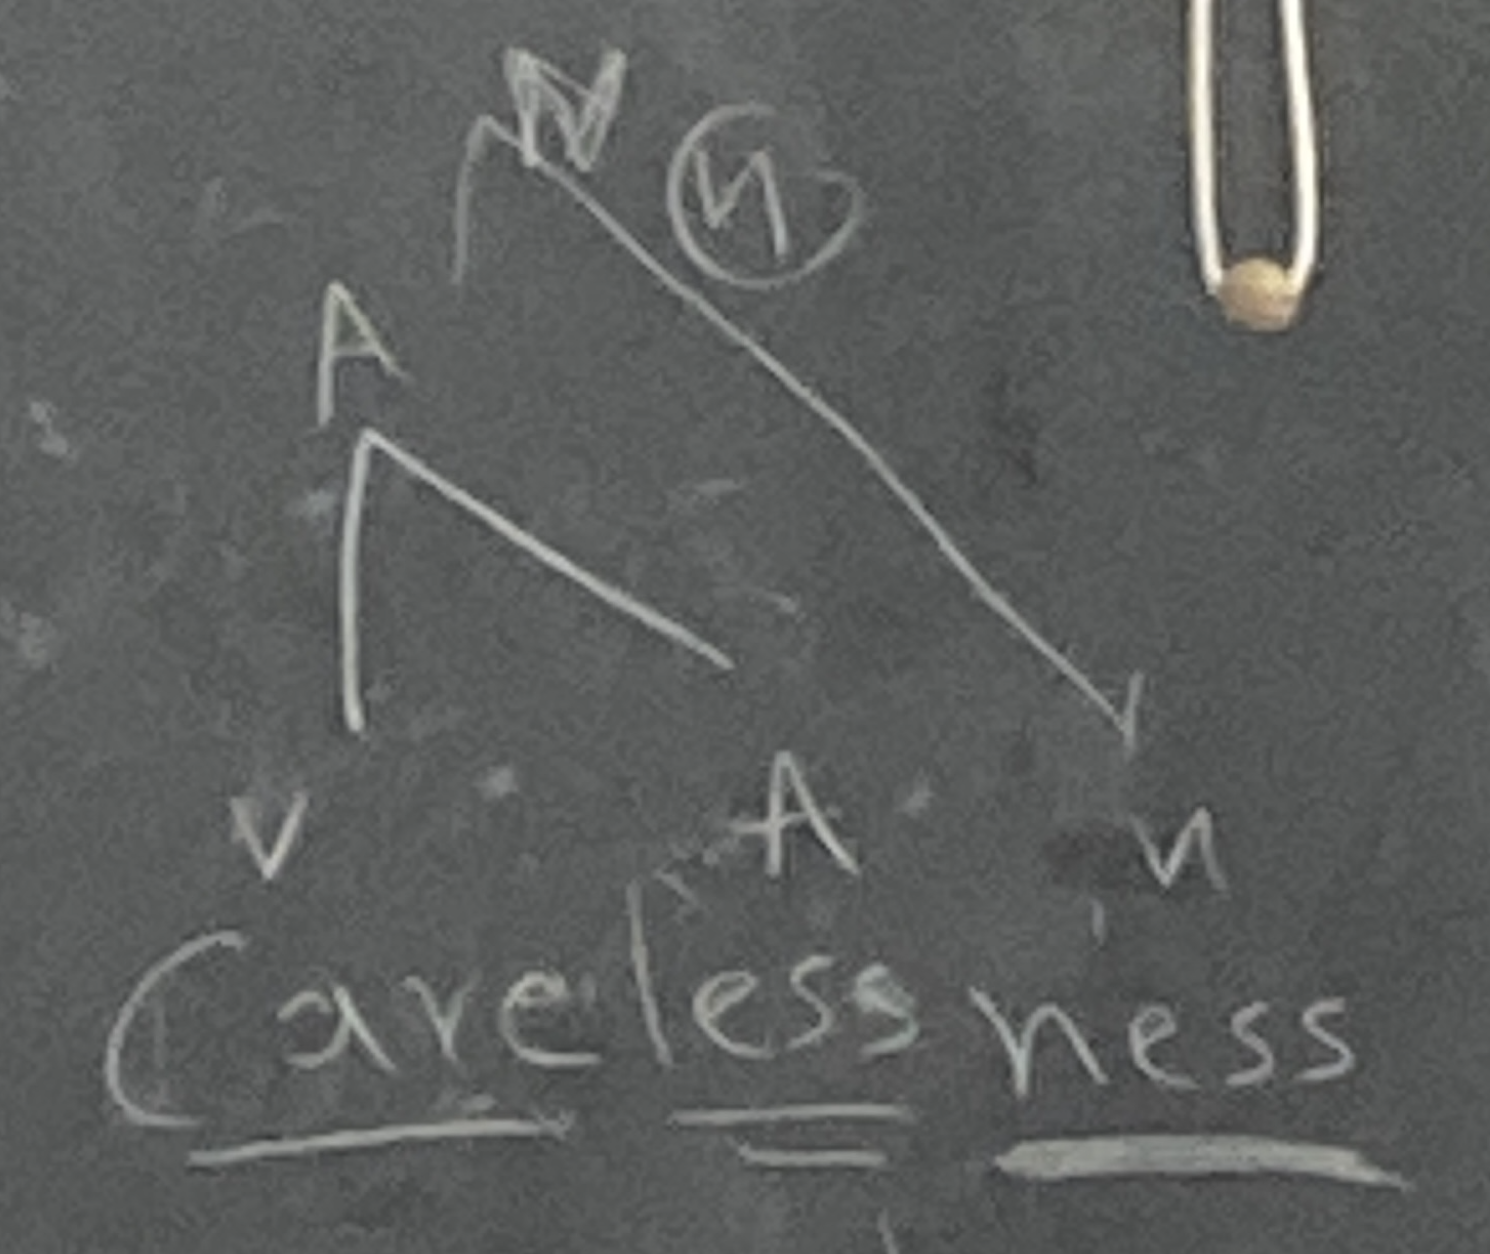 N N
A
V A N
Careless ness